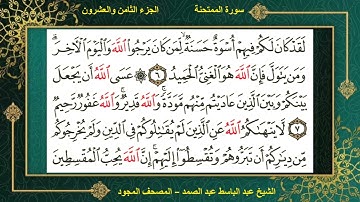 سورة الممتحنة
الجزء الثامن والعشرون
لَقَدْ كَانَ لَكُمْ فِيهِمْ أُسْوَةٌ حَسَنَةٌ لِّمَن كَانَ يَرْجُوا۟ ٱللَّهَ وَٱلْيَوْمَ ٱلْـَٔاخِرَ ۚ
وَمَن يَتَوَلَّ فَإِنَّ ٱللَّهَ هُوَ ٱلْغَنِىُّ ٱلْحَمِيدُ ٦ ۞ عَسَى ٱللَّهُ أَن يَجْعَلَ
بَيْنَكُمْ وَبَيْنَ ٱلَّذِينَ عَادَيْتُم مِّنْهُم مَّوَدَّةً ۚ وَٱللَّهُ قَدِيرٌ ۚ وَٱللَّهُ غَفُورٌ رَّحِيمٌ
٧ لَّا يَنْهَىٰكُمُ ٱللَّهُ عَنِ ٱلَّذِينَ لَمْ يُقَـٰتِلُوكُمْ فِى ٱلدِّينِ وَلَمْ يُخْرِجُوكُم
مِّن دِيَـٰرِكُمْ أَن تَبَرُّوهُمْ وَتُقْسِطُوٓا۟ إِلَيْهِمْ ۚ إِنَّ ٱللَّهَ يُحِبُّ ٱلْمُقْسِطِينَ
الشيخ عبد الباسط عبد الصمد – المصحف المجود